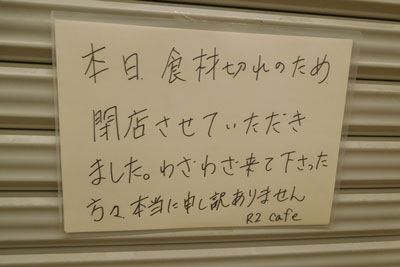 本日食材切れのため
閉店させていただき
ました。わざわざ来て下さった
方々本当に申し訳ありません
R2 cafe